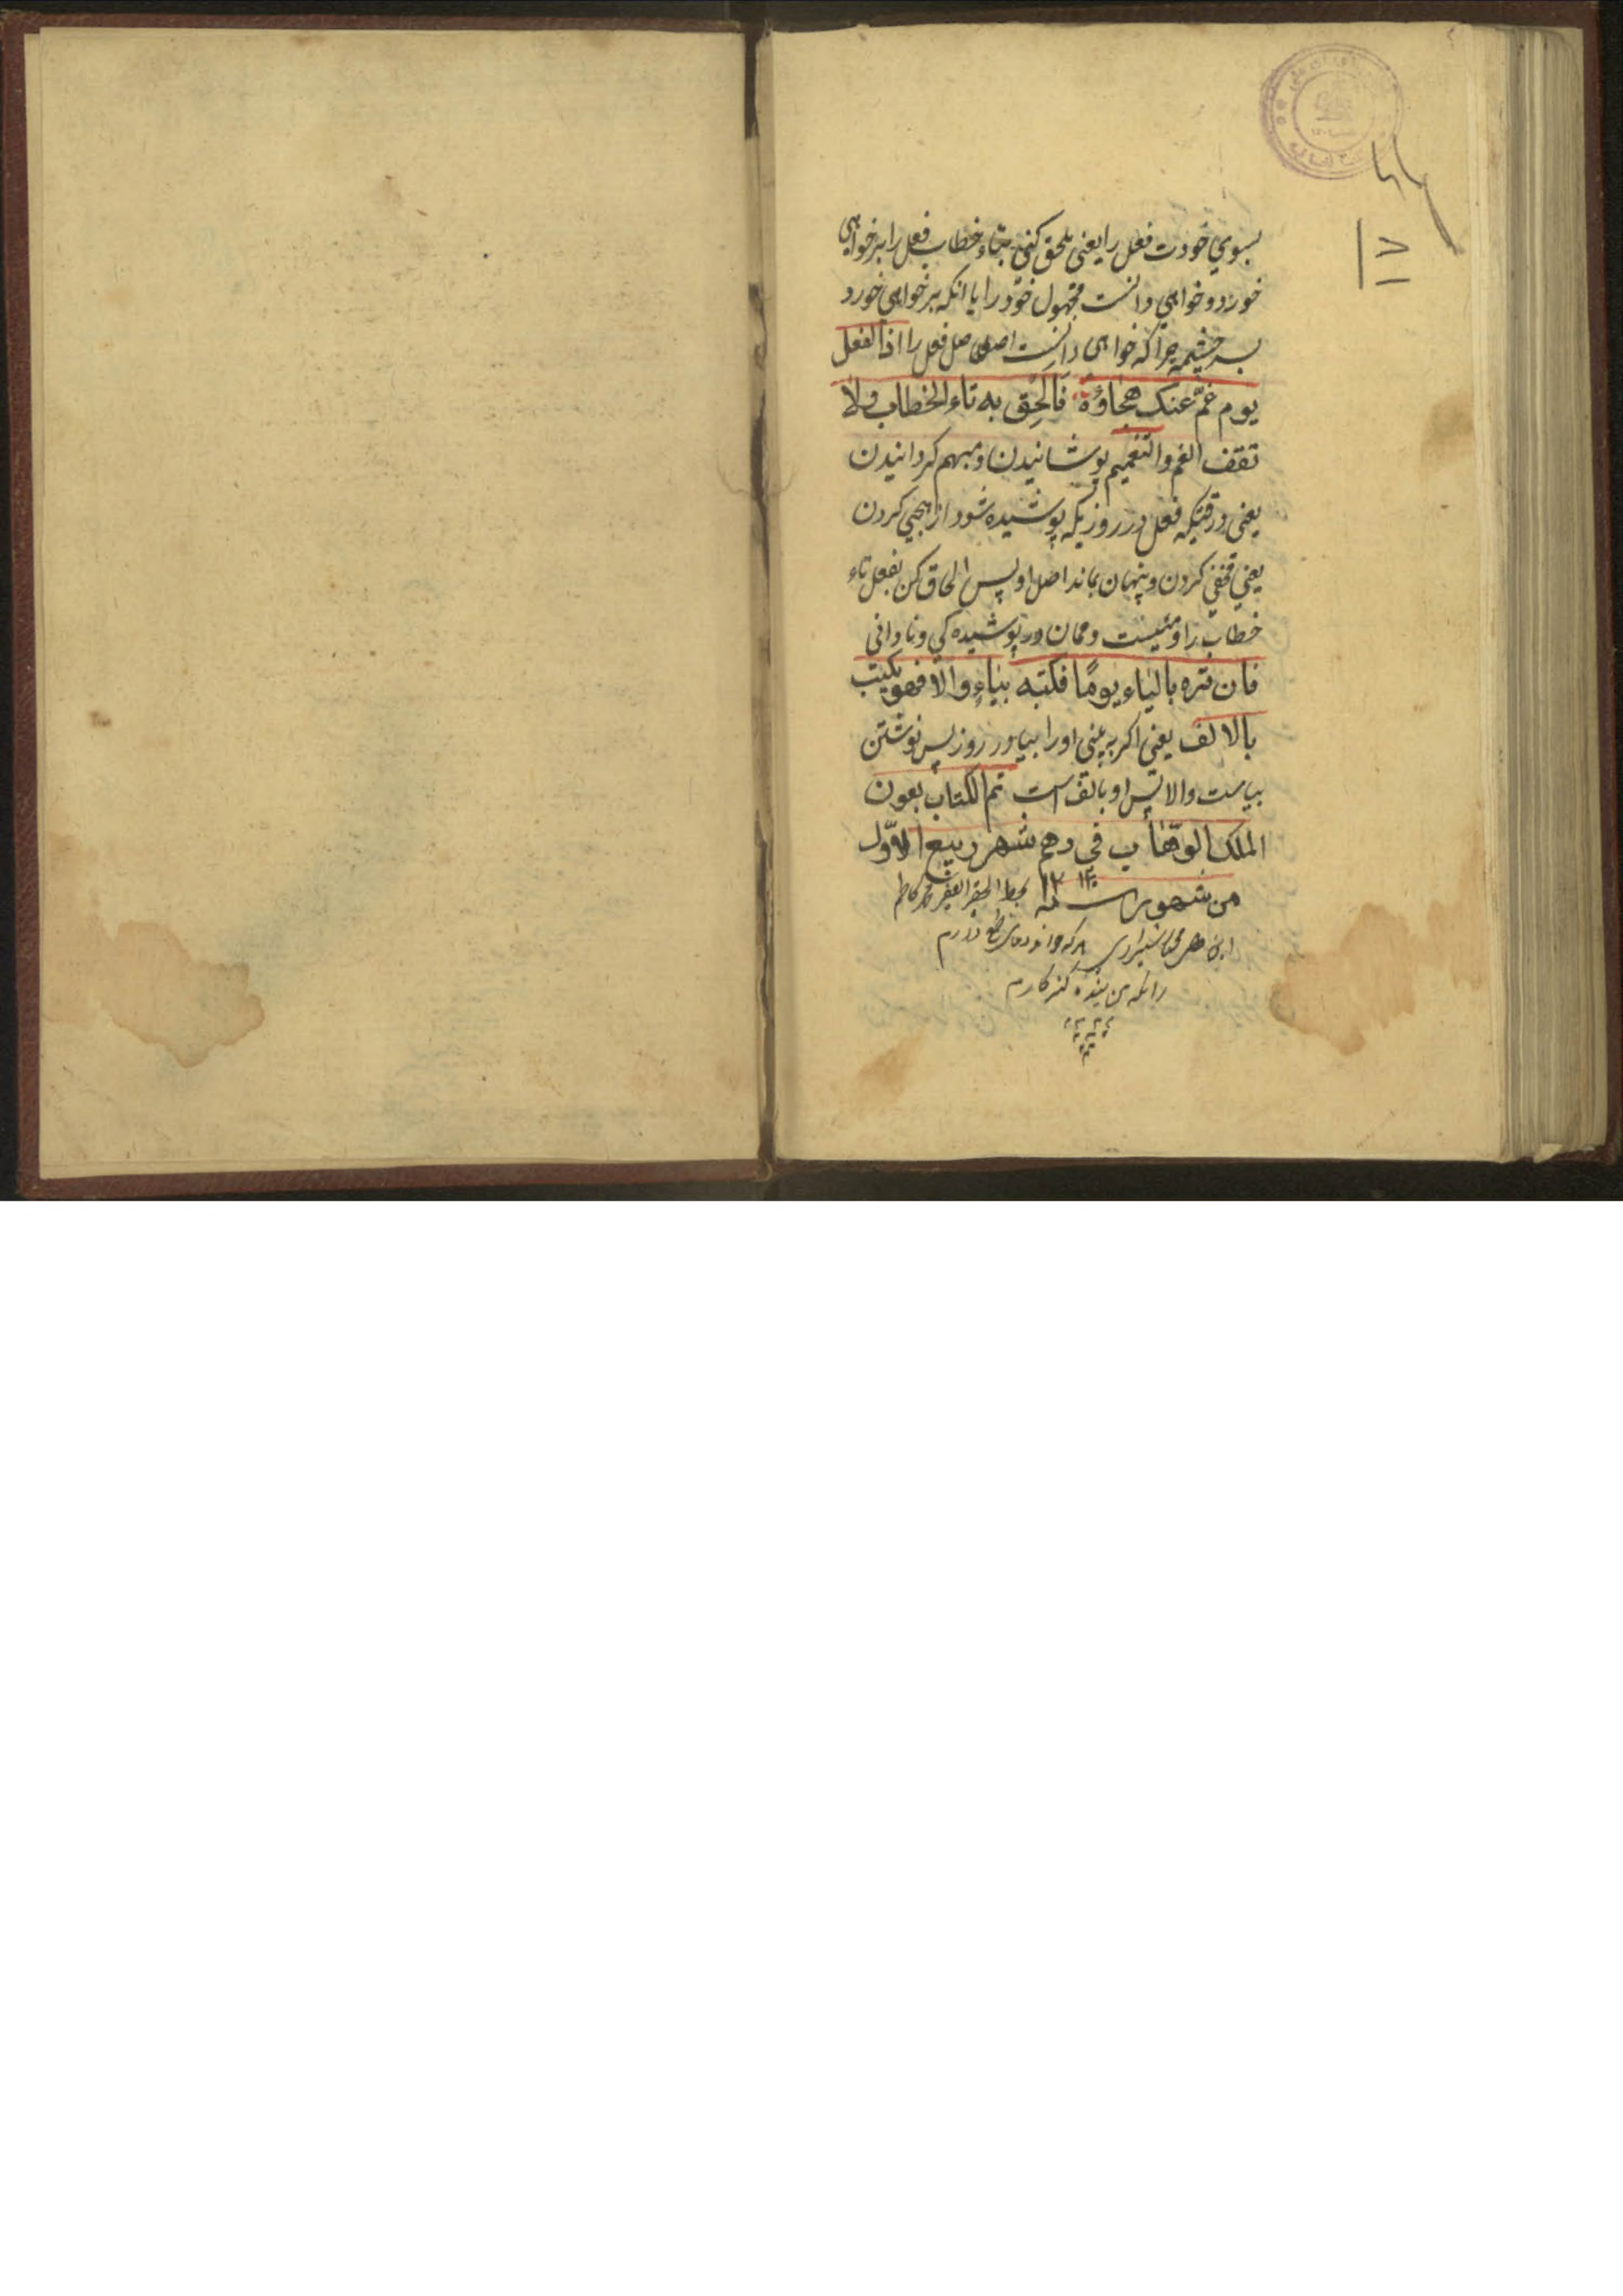 بسوي خودت فعل را یعنی ملحق کنی بتاء خطاب فعل را بر خواهی
خورد و خواهی دانست مجهول خود را یا انکه بر خواهی خورد
بسرچشمه چرا که خواهی دانست اصل فعل را اذا الفعل
یوم غمّ عنک هجاؤه فَاَلحِق به تاء الخطاب ولا
تقف الغم و التغمیم پوشانیدن و مبهم کردانیدن
یعنی در وقتیکه فعل در روزیکه پوشیده شود از هجی کردن
یعنی مخفی کردن و پنهان بماند اصل او پس الحاق کن بفعل تاء
خطاب را و مئیست و ممان در پوشیده کي و نادانی
فان تره بالیاء یومًا فکتبه بیاءٍ والا فهو یکتب
بالالف یعنی اکر به بینی او را بیا در روز پس نوشتن
بیاست والا پس او بالف است تم الکتاب بعون
الملک الوهّاب في دهم شهر ربیع الاوّل
من شهور سنه ۱۲۱۴ بخط الحقیر الفقیر محمد کاظم
ابن شیرازی هرکه خواند دعا طمع دارم
زانکه من بنده کنه کارم